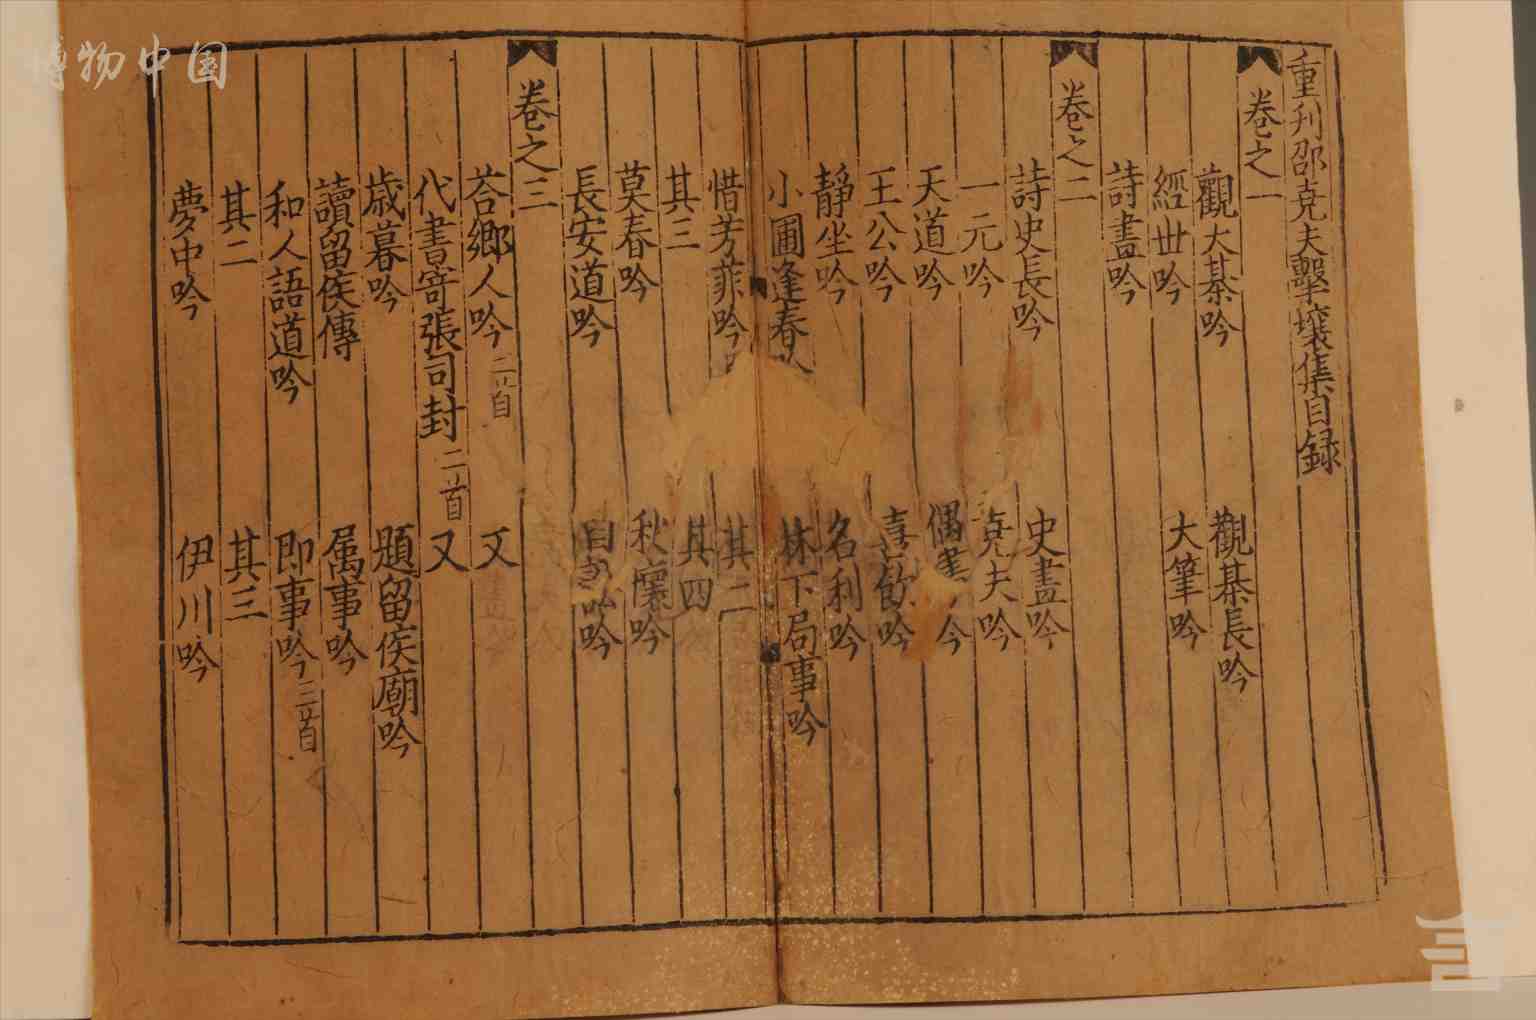 博物中国
重刋邵尭夫擊壤集目録
卷之一
觀大棊吟 觀棊長吟
經世吟 大筆吟
詩畫吟
卷之二
詩史長吟 史畫吟
一元吟 尭夫吟
天道吟 偶書吟
王公吟 喜飲吟
靜坐吟 名利吟
小圃逢春 林下局事吟
惜芳菲吟 其二
其三 其四
莫春吟 秋懷吟
長安道吟 自 吟
卷之三
荅鄉人吟二首 又
代書寄張司封二首 又
歲暮吟 題留侯廟吟
讀留侯傳 属事吟
和人語道吟 即事吟三首
其二 其三
夢中吟 伊川吟